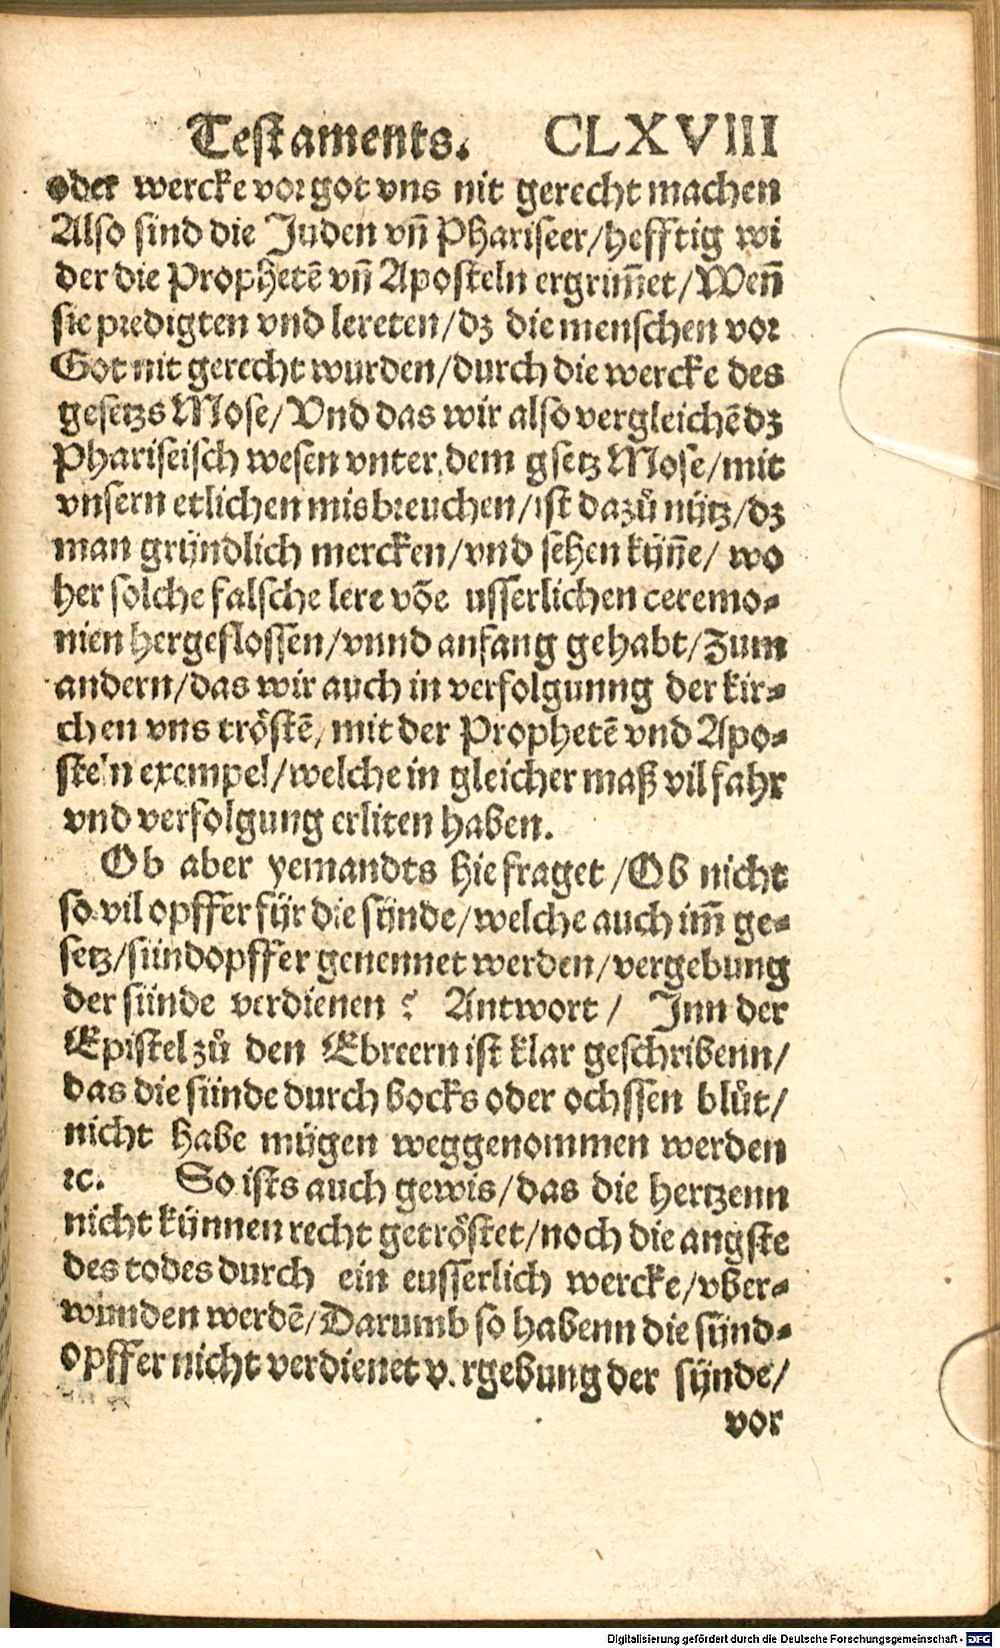 Testaments. CLXVIII
oder wercke vor got vns nit gerecht machen
Also sind die Juden vn̄ Phariseer/hefftig wi
der die Prophetē vn̄ Aposteln ergrim̄et/Wen̄
sie predigten vnd lereten/dz die menschen vor
Got nit gerecht wurden/durch die wercke des
gesetzs Mose/Vnd das wir also vergleichē dz
Phariseisch wesen vnter dem gsetz Mose/mit
vnsern etlichen misbreuchen/ist dazů nütz/dz
man gründlich mercken/vnd sehen kün̄e/ wo
her solche falsche lere vōe usserlichen ceremo-
nien hergeflossen/vnnd anfang gehabt/Zum
andern/das wir auch in verfolgunng der kir-
chen vns tröstē/mit der Prophetē vnd Apo-
steln exempel/welche in gleicher maß vil fahr
vnd verfolgung erliten haben.
Ob aber yemandts hie fraget/Ob nicht
so vil opffer für die sünde/welche auch im̄ ge-
setz/sündopffer genennet werden/vergebung
der sünde verdienen? Antwort/ Inn der
Epistel zů den Ebreern ist klar geschribenn/
das die sünde durch bocks oder ochssen blůt/
nicht habe mügen weggenommen werden
ꝛc. So ists auch gewis/das die hertzenn
nicht künnen recht getröstet/noch die angste
des todes durch ein eusserlich wercke/vber-
wunden werdē/Darumb so habenn die sünd-
opffer nicht verdienet v.rgebung der sünde/
vor
Digitalisierung gefördert durch die Deutsche Forschungsgemeinschaft - DFG